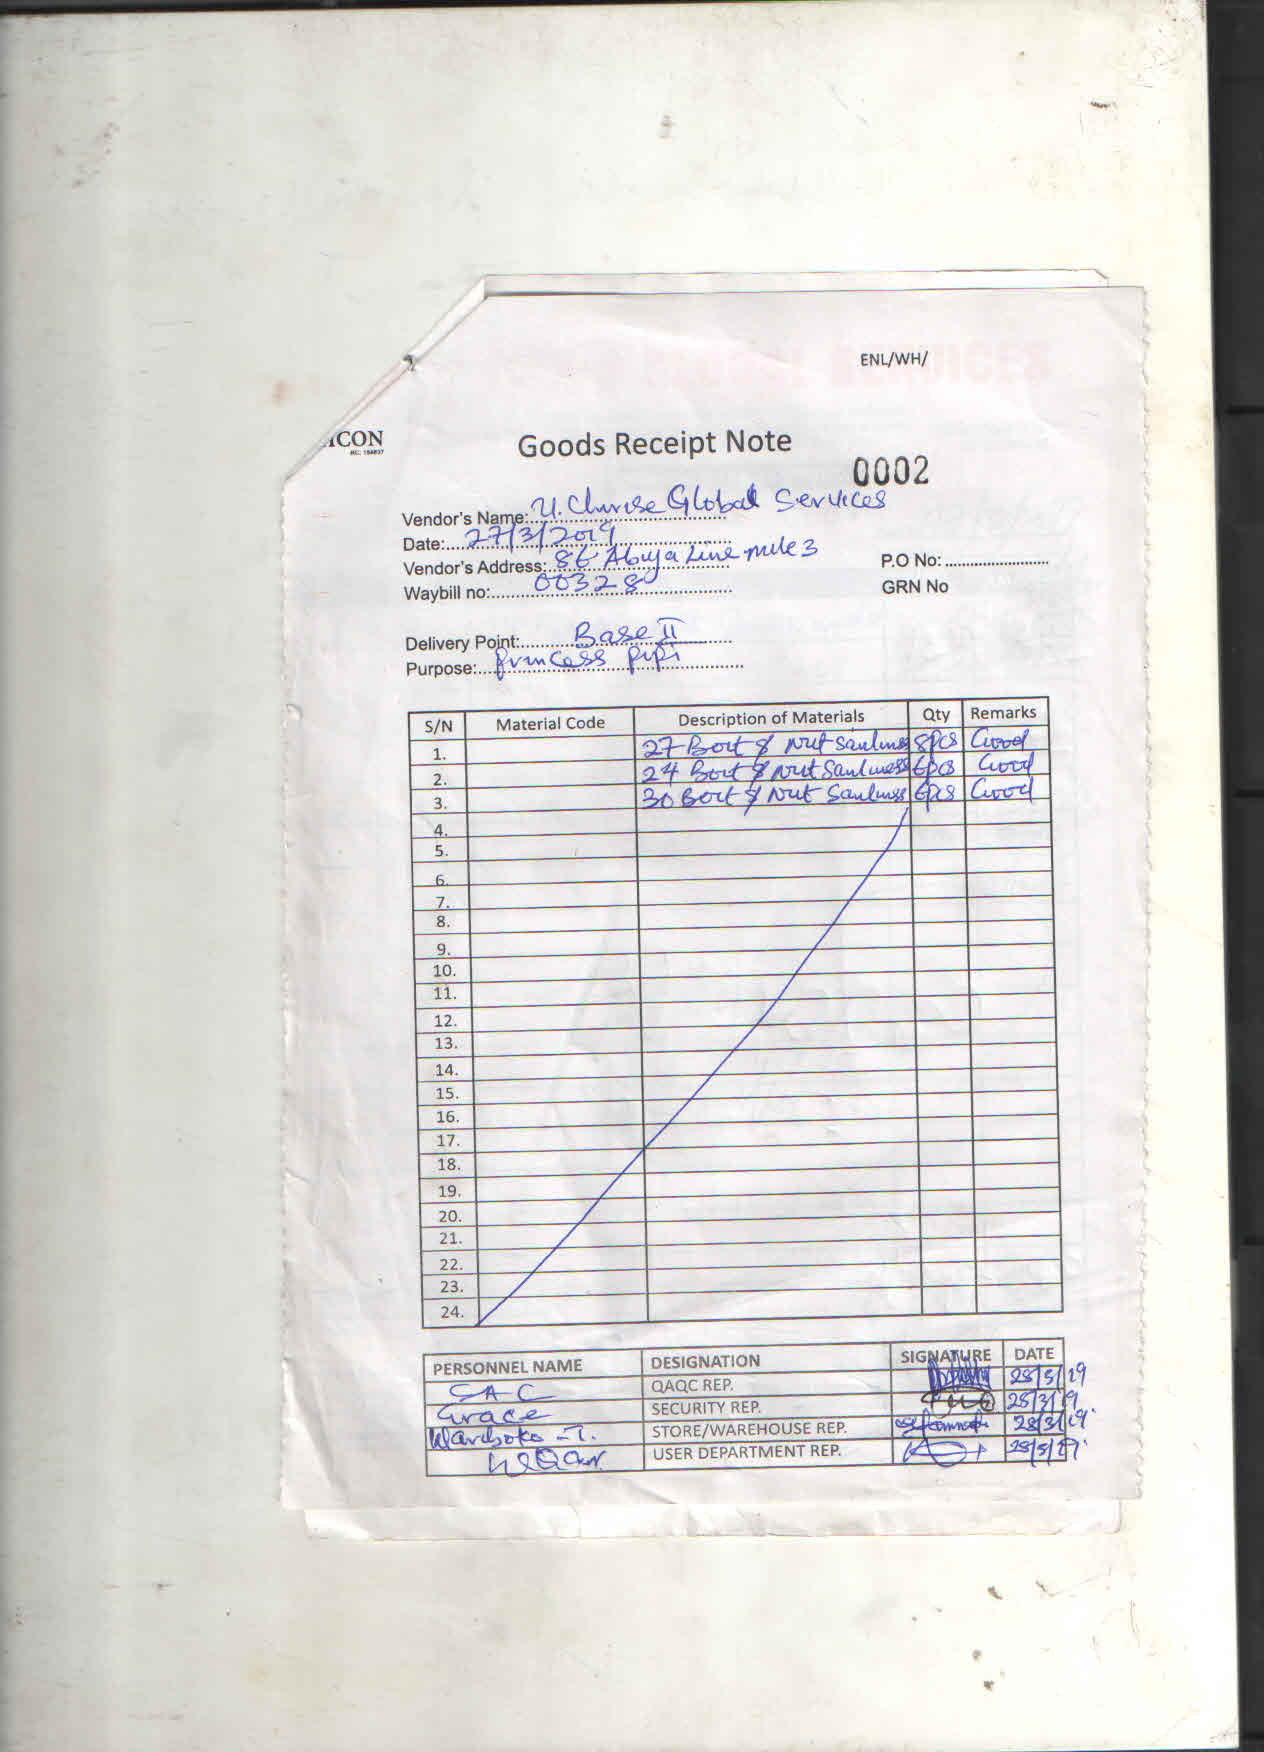 ENL/WH/
ICON
RC: 194837
Goods Receipt Note
0002
Vendor's Name: U. Chrise Global Services
Date: 27/3/2019
Vendor's Address: 86 Abuja Line mile 3
P.O No:
Waybill no: 00328
GRN No
Delivery Point: Base II
Purpose: Princess pipi
S/N Material Code Description of Materials Qty Remarks
1. 27 Bort & Nut Sanlmess 8pcs Good
2. 24 Bort & Nut Sanlmess 6pcs Good
3. 30 Bort & Nut Sanlmess 6pcs Good
4.
5.
6.
7.
8.
9.
10.
11.
12.
13.
14.
15.
16.
17.
18.
19.
20.
21.
22.
23.
24.
PERSONNEL NAME DESIGNATION SIGNATURE DATE
QAQC REP.
Grace SECURITY REP. 28/3/19
Wariboko -T. STORE/WAREHOUSE REP. 28/3/19
USER DEPARTMENT REP.